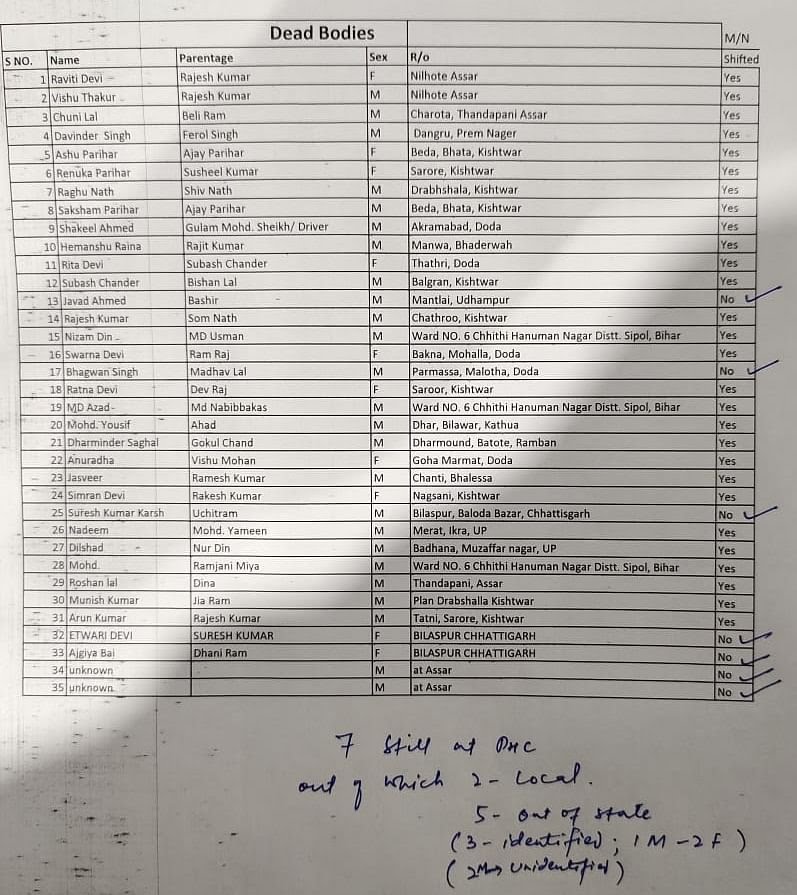 Dead Bodies
M/N
S NO. Name Parentage Sex R/o Shifted
1 Raviti Devi Rajesh Kumar F Nilhote Assar Yes
2 Vishu Thakur Rajesh Kumar M Nilhote Assar Yes
3 Chuni Lal Beli Ram M Charota, Thandapani Assar Yes
4 Davinder Singh Ferol Singh M Dangru, Prem Nager Yes
5 Ashu Parihar Ajay Parihar F Beda, Bhata, Kishtwar Yes
6 Renuka Parihar Susheel Kumar F Sarore, Kishtwar Yes
7 Raghu Nath Shiv Nath M Drabhshala, Kishtwar Yes
8 Saksham Parihar Ajay Parihar M Beda, Bhata, Kishtwar Yes
9 Shakeel Ahmed Gulam Mohd. Sheikh/ Driver M Akramabad, Doda Yes
10 Hemanshu Raina Rajit Kumar M Manwa, Bhaderwah Yes
11 Rita Devi Subash Chander F Thathri, Doda Yes
12 Subash Chander Bishan Lal M Balgran, Kishtwar Yes
13 Javad Ahmed Bashir M Mantlai, Udhampur No
14 Rajesh Kumar Som Nath M Chathroo, Kishtwar Yes
15 Nizam Din MD Usman M Ward NO. 6 Chhithi Hanuman Nagar Distt. Sipol, Bihar Yes
16 Swarna Devi Ram Raj F Bakna, Mohalla, Doda Yes
17 Bhagwan Singh Madhav Lal M Parmassa, Malotha, Doda No
18 Ratna Devi Dev Raj F Saroor, Kishtwar Yes
19 MD Azad Md Nabibbakas M Ward NO. 6 Chhithi Hanuman Nagar Distt. Sipol, Bihar Yes
20 Mohd. Yousif Ahad M Dhar, Bilawar, Kathua Yes
21 Dharminder Saghal Gokul Chand M Dharmound, Batote, Ramban Yes
22 Anuradha Vishu Mohan F Goha Marmat, Doda Yes
23 Jasveer Ramesh Kumar M Chanti, Bhalessa Yes
24 Simran Devi Rakesh Kumar F Nagsani, Kishtwar Yes
25 Suresh Kumar Karsh Uchitram M Bilaspur, Baloda Bazar, Chhattisgarh No
26 Nadeem Mohd. Yameen M Merat, Ikra, UP Yes
27 Dilshad Nur Din M Badhana, Muzaffar nagar, UP Yes
28 Mohd. Ramjani Miya M Ward NO. 6 Chhithi Hanuman Nagar Distt. Sipol, Bihar Yes
29 Roshan lal Dina M Thandapani, Assar Yes
30 Munish Kumar Jia Ram M Plan Drabshalla Kishtwar Yes
31 Arun Kumar Rajesh Kumar M Tatni, Sarore, Kishtwar Yes
32 ETWARI DEVI SURESH KUMAR F BILASPUR CHHATTIGARH No
33 Ajgiya Bai Dhani Ram F BILASPUR CHHATTIGARH No
34 unknown M at Assar No
35 unknown M at Assar No
7 still at PHC
out of which 2- Local.
5- out of state
(3- identified; 1M-2F)
(2M→ Unidentified)